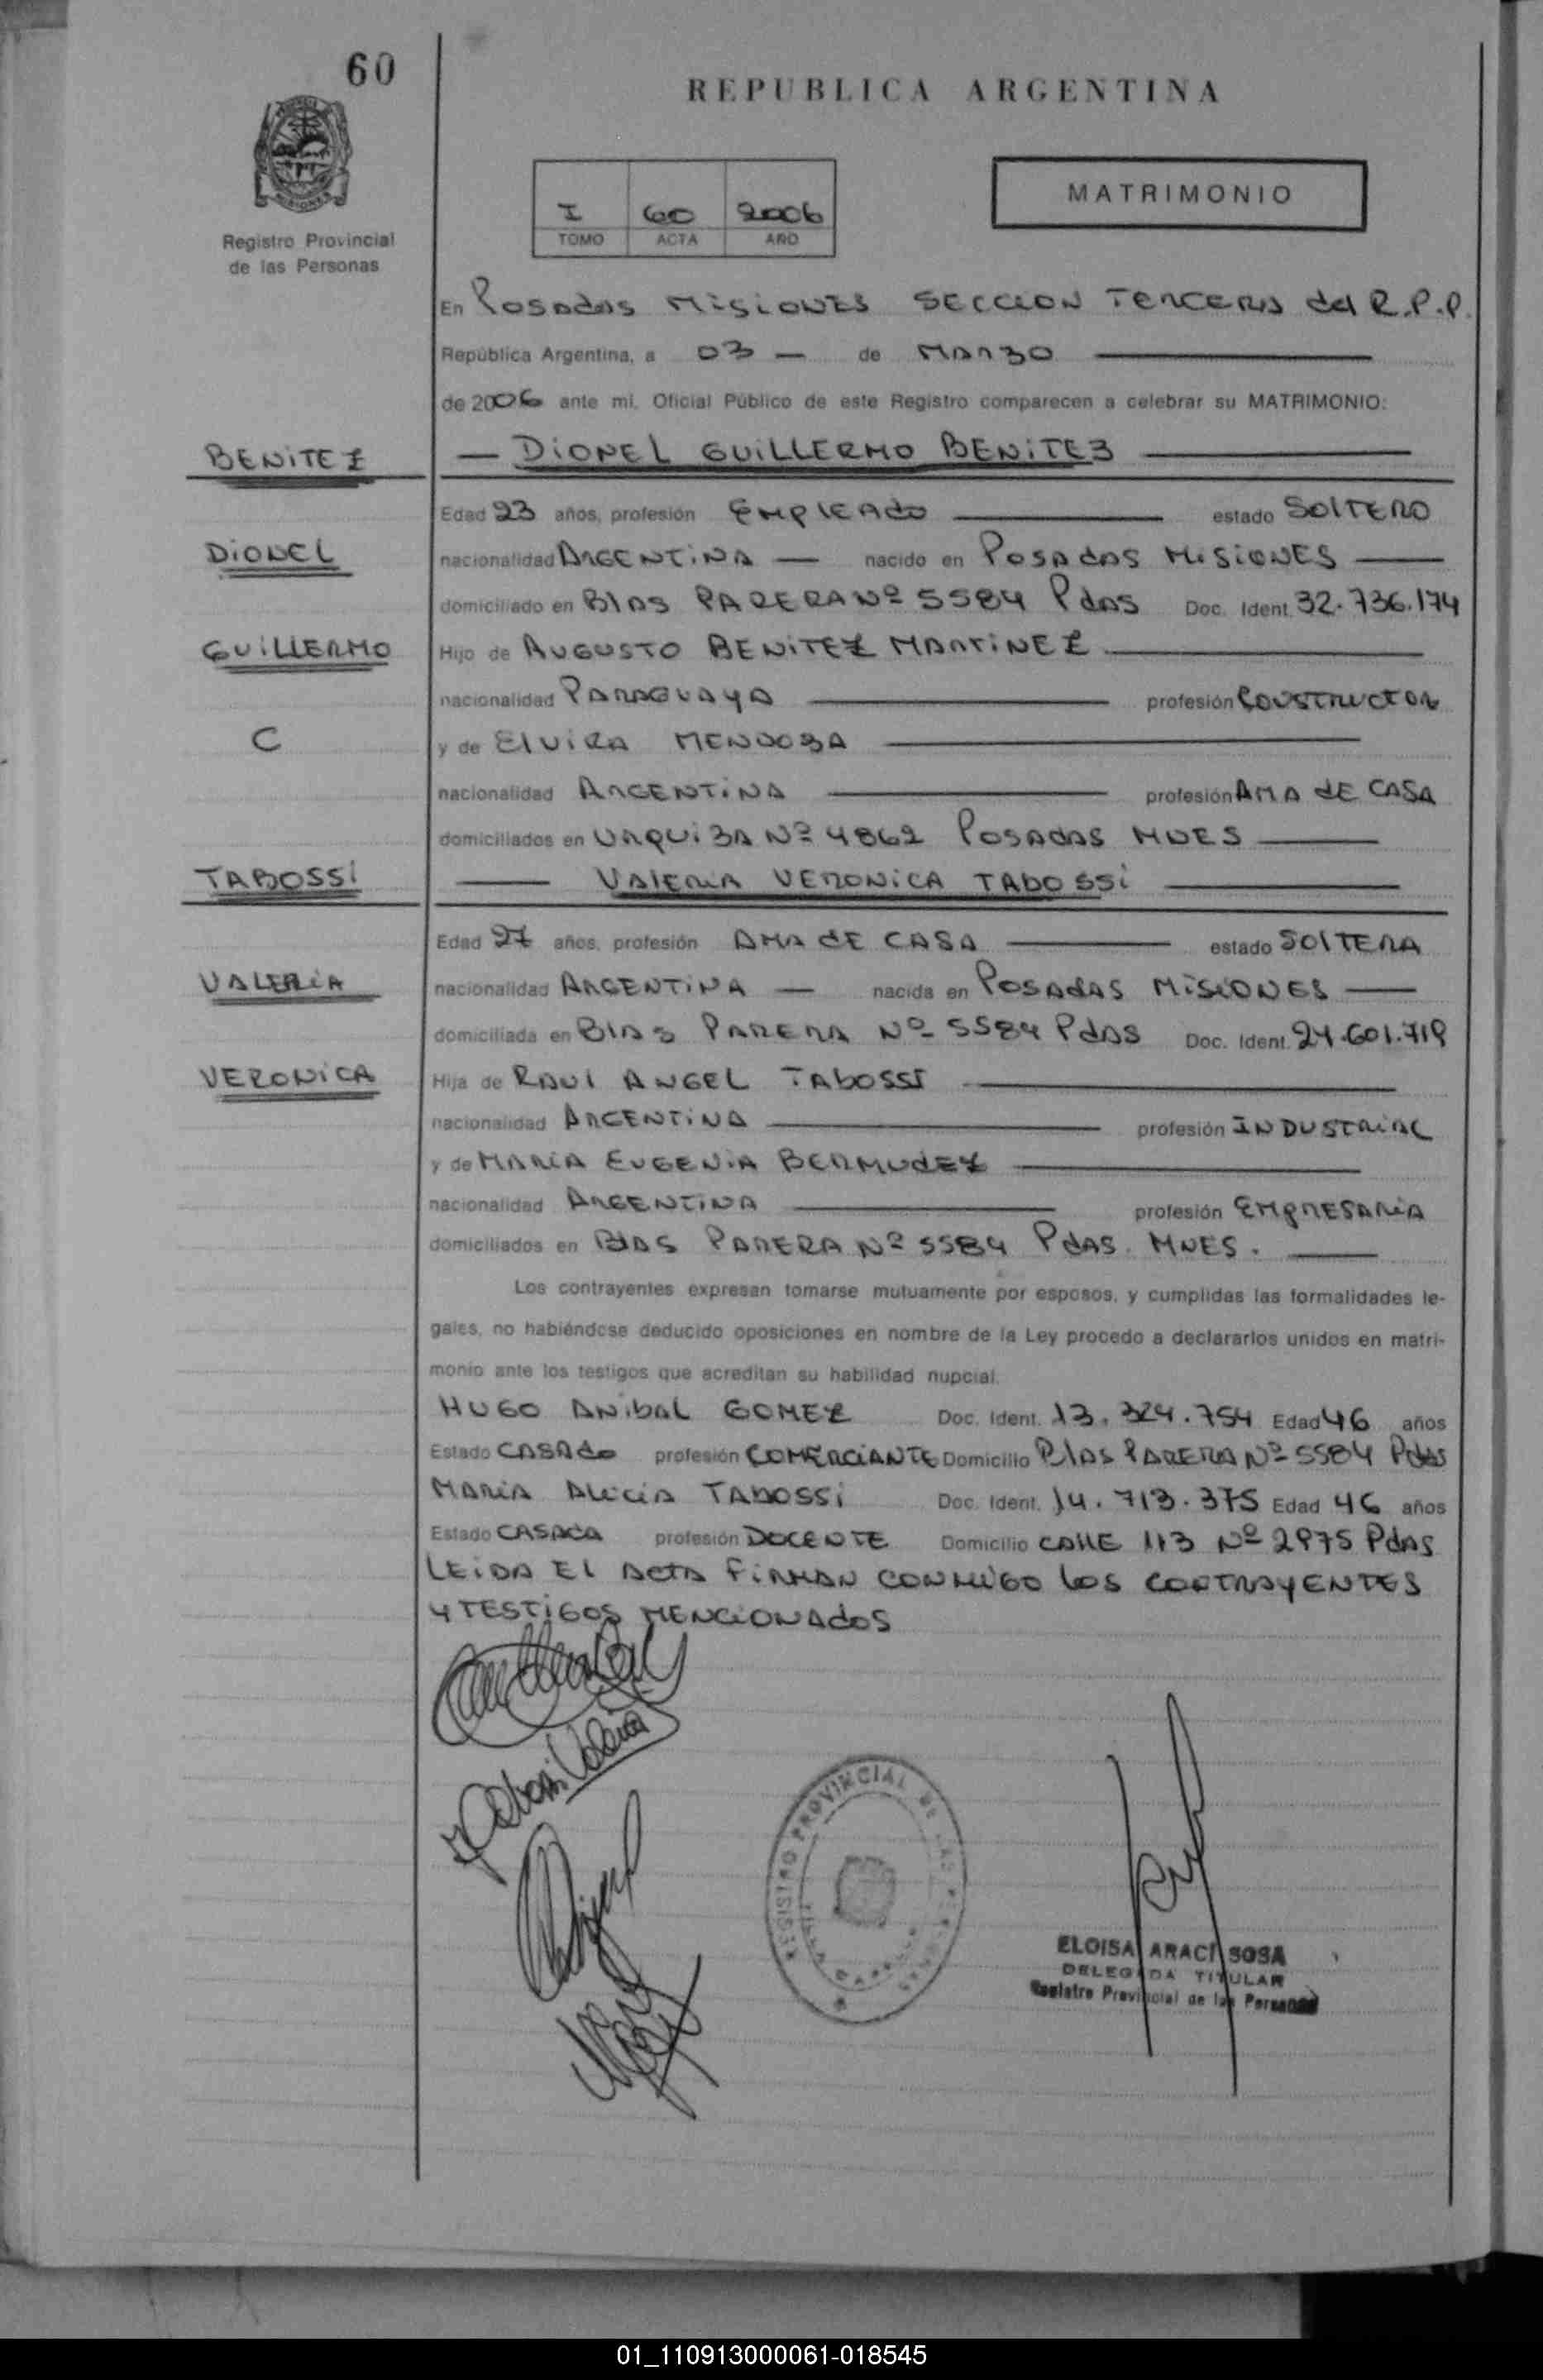 60
REPUBLICA ARGENTINA
MATRIMONIO
I 60 2006
TOMO ACTA AÑO
Registro Provincial
de las Personas
En Posadas Misiones Seccion Tercera del R.P.P.
República Argentina, a 03 — de Marzo
de 2006 ante mi, Oficial Público de este Registro comparecen a celebrar su MATRIMONIO:
BENITEZ — DIONEL GUILLERMO BENITEZ
Edad 23 años, profesión Empleado estado Soltero
DIONEL nacionalidad Argentina — nacido en Posadas Misiones
domiciliado en Blas Parera Nº 5584 Pdas Doc. Ident. 32.736.174
GUILLERMO Hijo de Augusto Benitez Martinez
nacionalidad Paraguaya profesión Constructor
C y de Elvira Mendoza
nacionalidad Argentina profesión Ama de Casa
domiciliados en Urquiza Nº 4862 Posadas Mnes
TABOSSI — Valeria Veronica Tabossi
Edad 27 años, profesión Ama de Casa estado Soltera
VALERIA nacionalidad Argentina — nacida en Posadas Misiones
domiciliada en Blas Parera Nº 5584 Pdas Doc. Ident. 24.601.719
VERONICA Hija de Raul Angel Tabossi
nacionalidad Argentina profesión Industrial
y de Maria Eugenia Bermudez
nacionalidad Argentina profesión Empresaria
domiciliados en Blas Parera Nº 5584 Pdas. Mnes.
Los contrayentes expresan tomarse mutuamente por esposos, y cumplidas las formalidades le-
gales, no habiéndose deducido oposiciones en nombre de la Ley procedo a declararlos unidos en matri-
monio ante los testigos que acreditan su habilidad nupcial.
Hugo Anibal Gomez Doc. Ident. 13.324.754 Edad 46 años
Estado Casado profesión Comerciante Domicilio Blas Parera Nº 5584 Pdas
Maria Alicia Tabossi Doc. Ident. 14.713.375 Edad 46 años
Estado Casada profesión Docente Domicilio Calle 113 Nº 2975 Pdas
Leida el acta firman conmigo los contrayentes
y testigos mencionados
Tabossi Valeria
REGISTRO PROVINCIAL DE LAS PERSONAS
ELOISA ARACI SOSA
DELEGADA TITULAR
Registro Provincial de las Personas
01_110913000061-018545